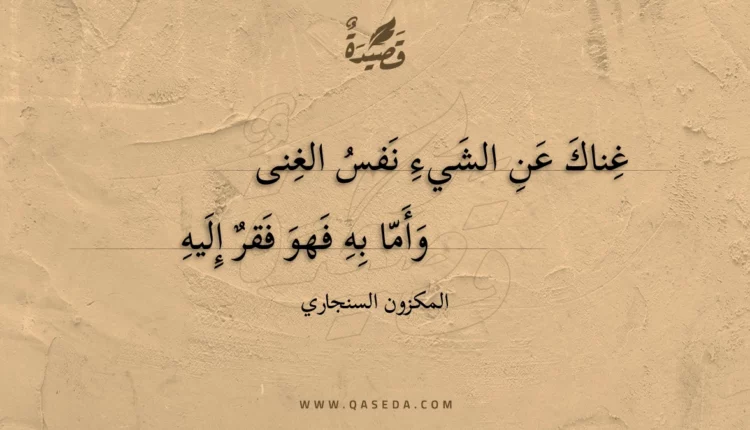 قَصِيْدَةٌ
غِناكَ عَنِ الشَيءِ نَفسُ الغِنى
وَأَمّا بِهِ فَهوَ فَقرٌ إِلَيهِ
المكزون السنجاري
WWW.QASEDA.COM